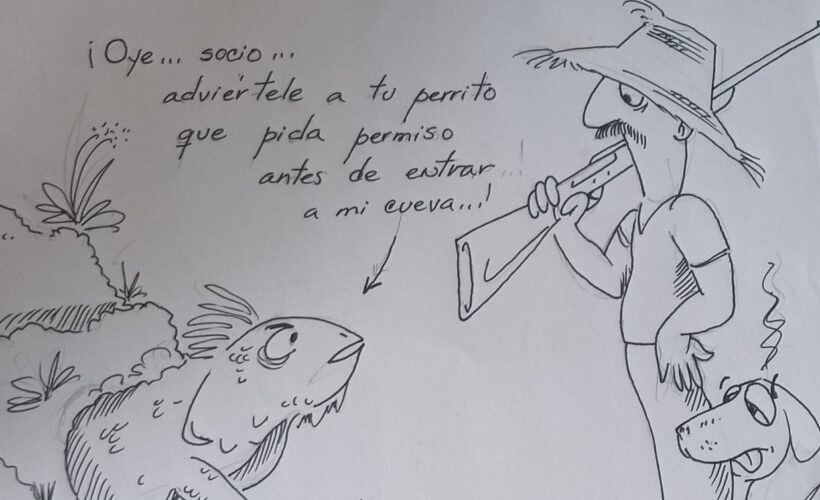 ¡Oye... socio...
adviértele a tu perrito
que pida permiso
antes de entrar...
a mi cueva...!